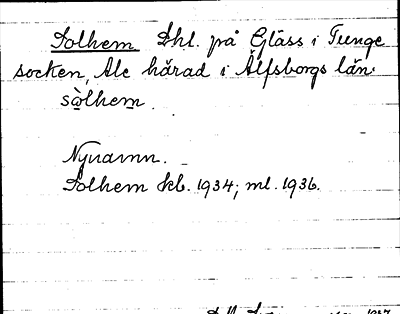 Solhem Lhl. på Gläss i Tunge
socken, Ale härad i Älfsborgs län.
sòlhem.
Nynamn.
Solhem kb. 1934; ml. 1936.